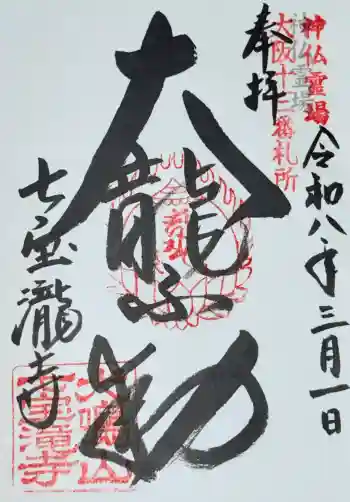 神仏霊場
大阪十三番札所
奉拝
令和八年三月一日
大龍不動
七宝瀧寺
犬鳴山
七宝滝寺